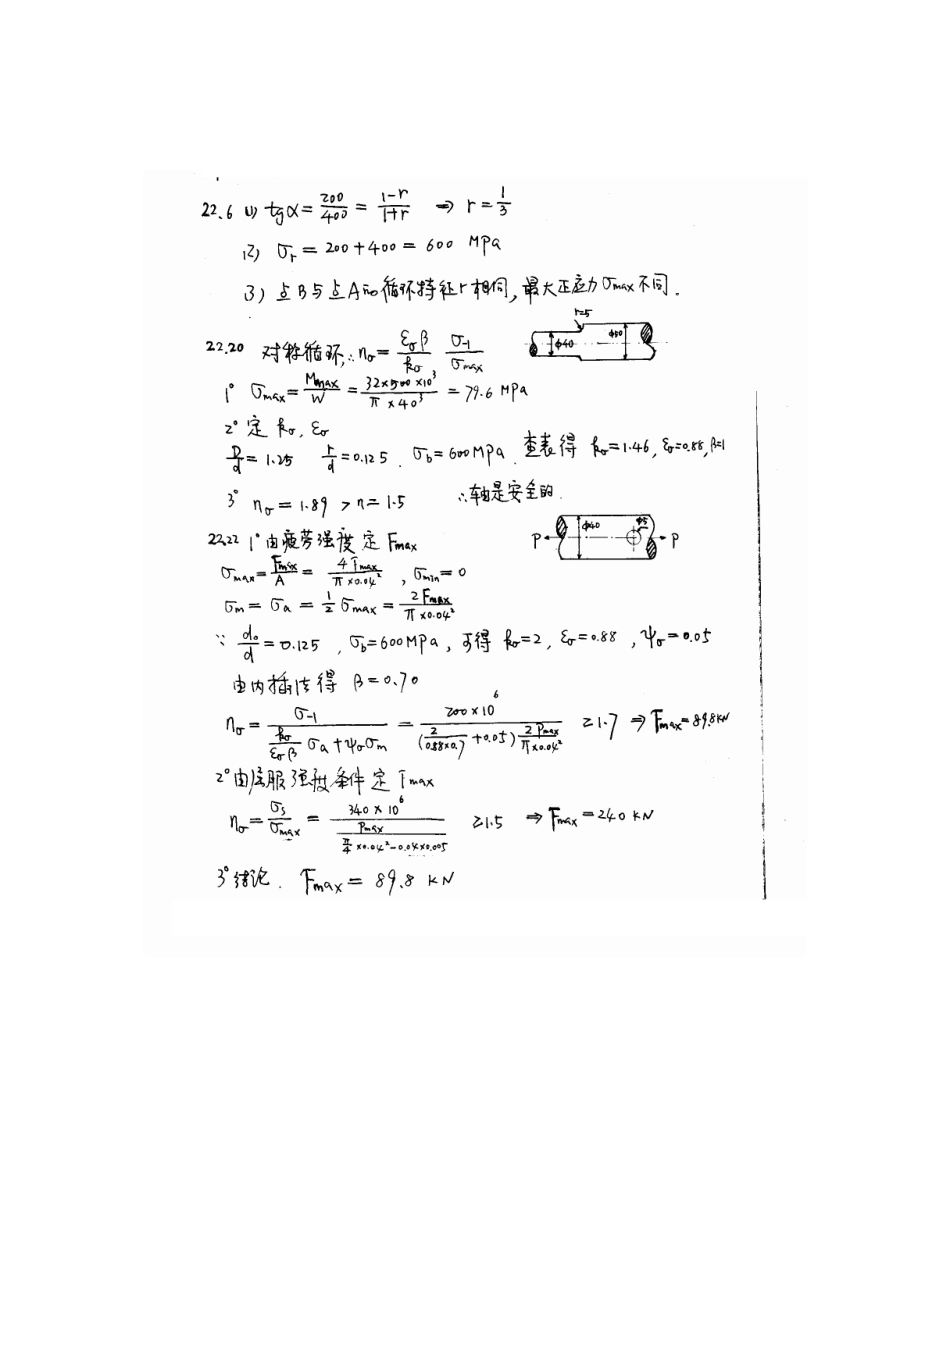 22.6 (1) tgα = 200/400 = (1-r)/(1+r) ⇒ r = 1/3
(2) σr = 200 + 400 = 600 MPa
(3) 点B与点A的循环特征r相同, 最大正应力σmax不同.
r=5
φ40 φ50
22.20 对称循环, ∴ nσ = (εσβ/kσ) (σ-1/σmax)
1° σmax = Mmax/W = (32×500×10³)/(π×40³) = 79.6 MPa
2° 定 kσ, εσ
D/d = 1.25 r/d = 0.125 . σb = 600MPa . 查表得 kσ=1.46, εσ=0.88, β=1
3° nσ = 1.89 > n = 1.5 ∴轴是安全的.
φ40 φ5
P P
22.22 1° 由疲劳强度定 Fmax
σmax = Fmax/A = 4Fmax/(π×0.04²) , σmin = 0
σm = σa = 1/2 σmax = 2Fmax/(π×0.04²)
∵ d₀/d = 0.125 , σb=600MPa, 可得 kσ=2, εσ=0.88 , ψσ=0.05
由内插法得 β=0.70
nσ = σ-1/((kσ/εσβ)σa+ψσσm) = (200×10⁶)/((2/(0.88×0.7)+0.05)(2Pmax/(π×0.04²))) ≥1.7 ⇒ Fmax=89.8kN
2° 由屈服强度条件定 Fmax
nσ = σs/σmax = (340×10⁶)/(Pmax/(π/4×0.04²-0.04×0.005)) ≥1.5 ⇒ Fmax = 240 kN
3° 结论. Fmax = 89.8 kN